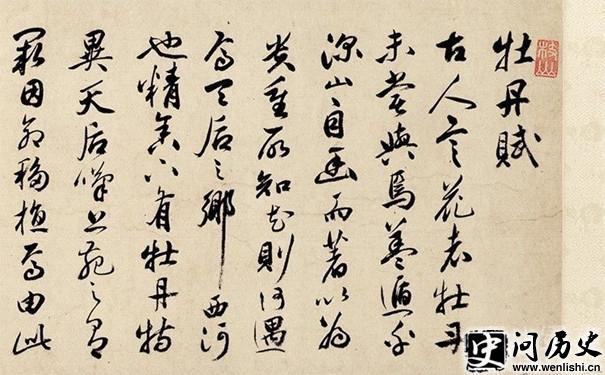 牡丹賦
古人言花者牡丹
未嘗與焉蓋遁乎
深山自幽而著以為
貴重所知花則何遇
焉天后之鄉西河
也精舍下有牡丹特
異天后嘆上苑之有
闕因命移植焉由此
枝山
史问历史
www.wenlishi.cn